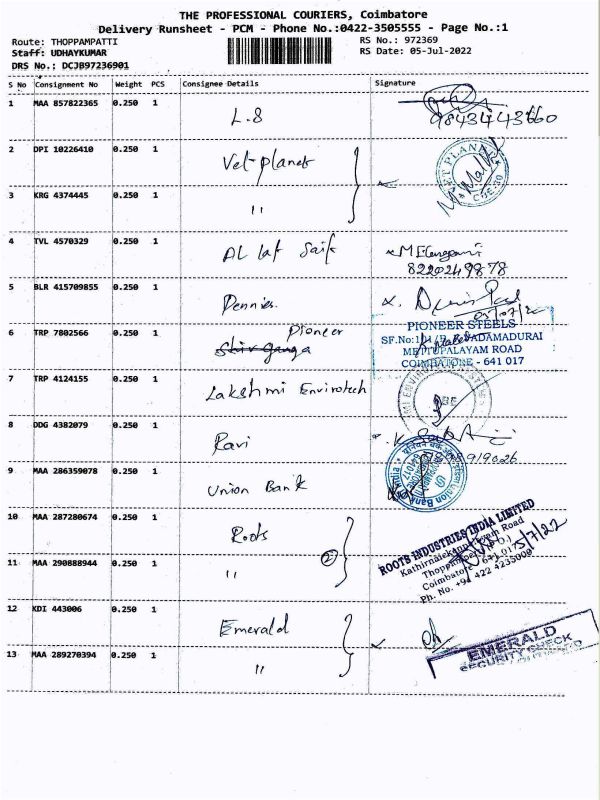 THE PROFESSIONAL COURIERS, Coimbatore
Delivery Runsheet - PCM - Phone No.:0422-3505555 - Page No.:1
Route: THOPPAMPATTI
RS No.: 972369
Staff: UDHAYKUMAR
RS Date: 05-Jul-2022
DRS No.: DCJB97236901
S No Consignment No Weight PCS Consignee Details Signature
1 MAA 857822365 0.250 1 L.8
9843443660
2 DPI 10226410 0.250 1 Vet-planet
VET PLANET
3 KRG 4374445 0.250 1 "
4 TVL 4570329 0.250 1 Al laf Saif
8220249878
5 BLR 415709855 0.250 1 Dennies
05/07/22
6 TRP 7802566 0.250 1 Pioneer
PIONEER STEELS
METTUPALAYAM ROAD
COIMBATORE - 641 017
7 TRP 4124155 0.250 1 Lakshmi Envirotech
8 DDG 4382079 0.250 1 Ravi
9 MAA 286359078 0.250 1 Union Bank
10 MAA 287280674 0.250 1 Roots
2
ROOTS INDUSTRIES INDIA LIMITED
Kathirnaickenpalayam Road
Coimbatore - 641 017
5/7/22
Ph. No. +91 422 4235000
11 MAA 290888944 0.250 1 "
12 KDI 443006 0.250 1 Emerald
EMERALD
SECURITY CHECK
13 MAA 289270394 0.250 1 "